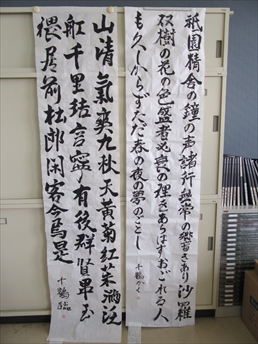 祇園精舎の鐘の声諸行無常の響きあり沙羅
双樹の花の色盛者必衰の理をあらはすおごれる人
も久しからずただ春の夜の夢のごとし
千鶴かく
山清氣爽九秋天黄菊紅茱滿泛
舡千里結言寧有後群賢畢至
猥居前杜郎閑客今焉是
千鶴臨